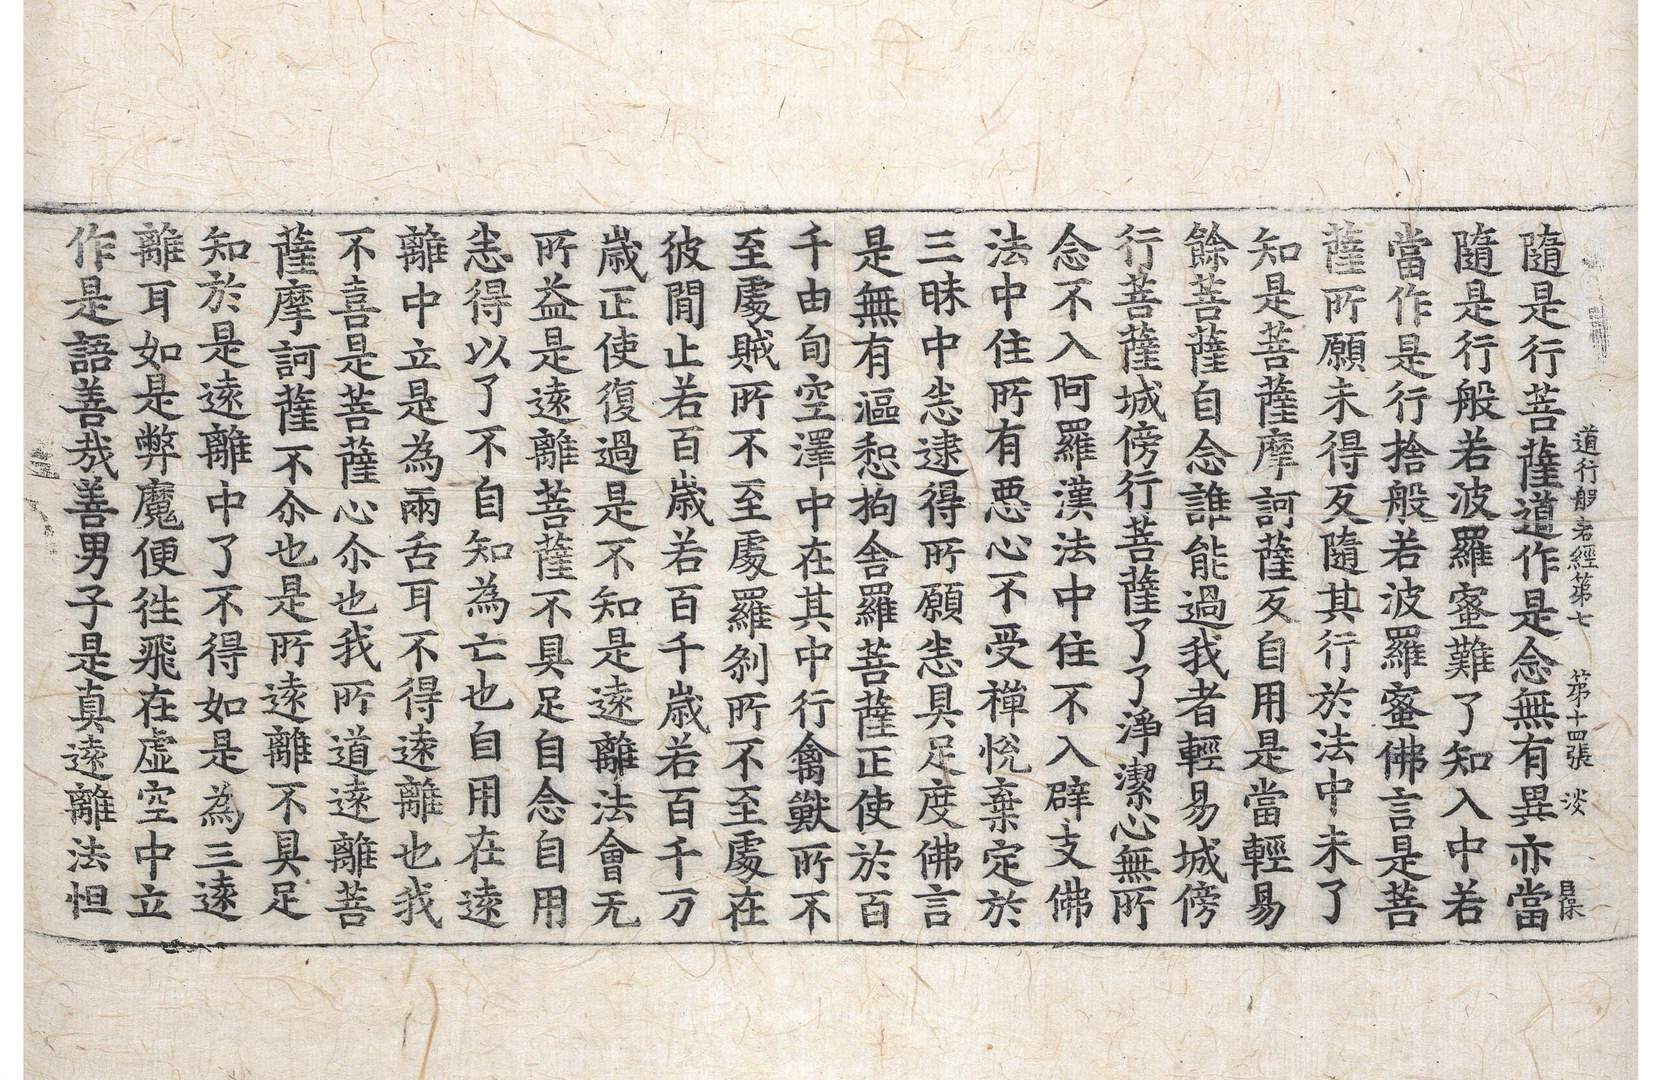 道行般若經第七 第十四張 淡
隨是行菩薩道作是念無有異亦當
隨是行般若波羅蜜難了知入中若
當作是行捨般若波羅蜜佛言是菩
薩所願未得反隨其行於法中未了
知是菩薩摩訶薩反自用是當輕易
餘菩薩自念誰能過我者輕易城傍
行菩薩城傍行菩薩了了淨潔心無所
念不入阿羅漢法中住不入辟支佛
法中住所有悪心不受禪悅棄定於
三昧中悉逮得所願悉具足度佛言
是無有漚惒拘舍羅菩薩正使於百
千由旬空澤中在其中行禽獸所不
至處賊所不至處羅剎所不至處在
彼間止若百歲若百千歲若百千万
歲正使復過是不知是遠離法會无
所益是遠離菩薩不具足自念自用
悉得以了不自知為亡也自用在遠
離中立是為兩舌耳不得遠離也我
不喜是菩薩心尒也我所道遠離菩
薩摩訶薩不尒也是所遠離不具足
知於是遠離中了不得如是為三遠
離耳如是弊魔便往飛在虛空中立
作是語善哉善男子是真遠離法怛